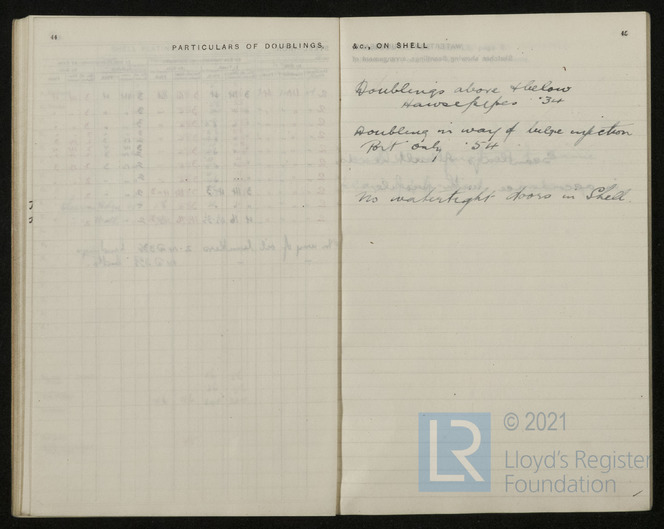 PARTICULARS OF DOUBLINGS,
&c., ON SHELL
Doublings above & below
Hawsepipes ·34
Doubling in way of bilge injection
Port only ·54
No watertight doors in Shell.
LR © 2021
Lloyd's Register
Foundation